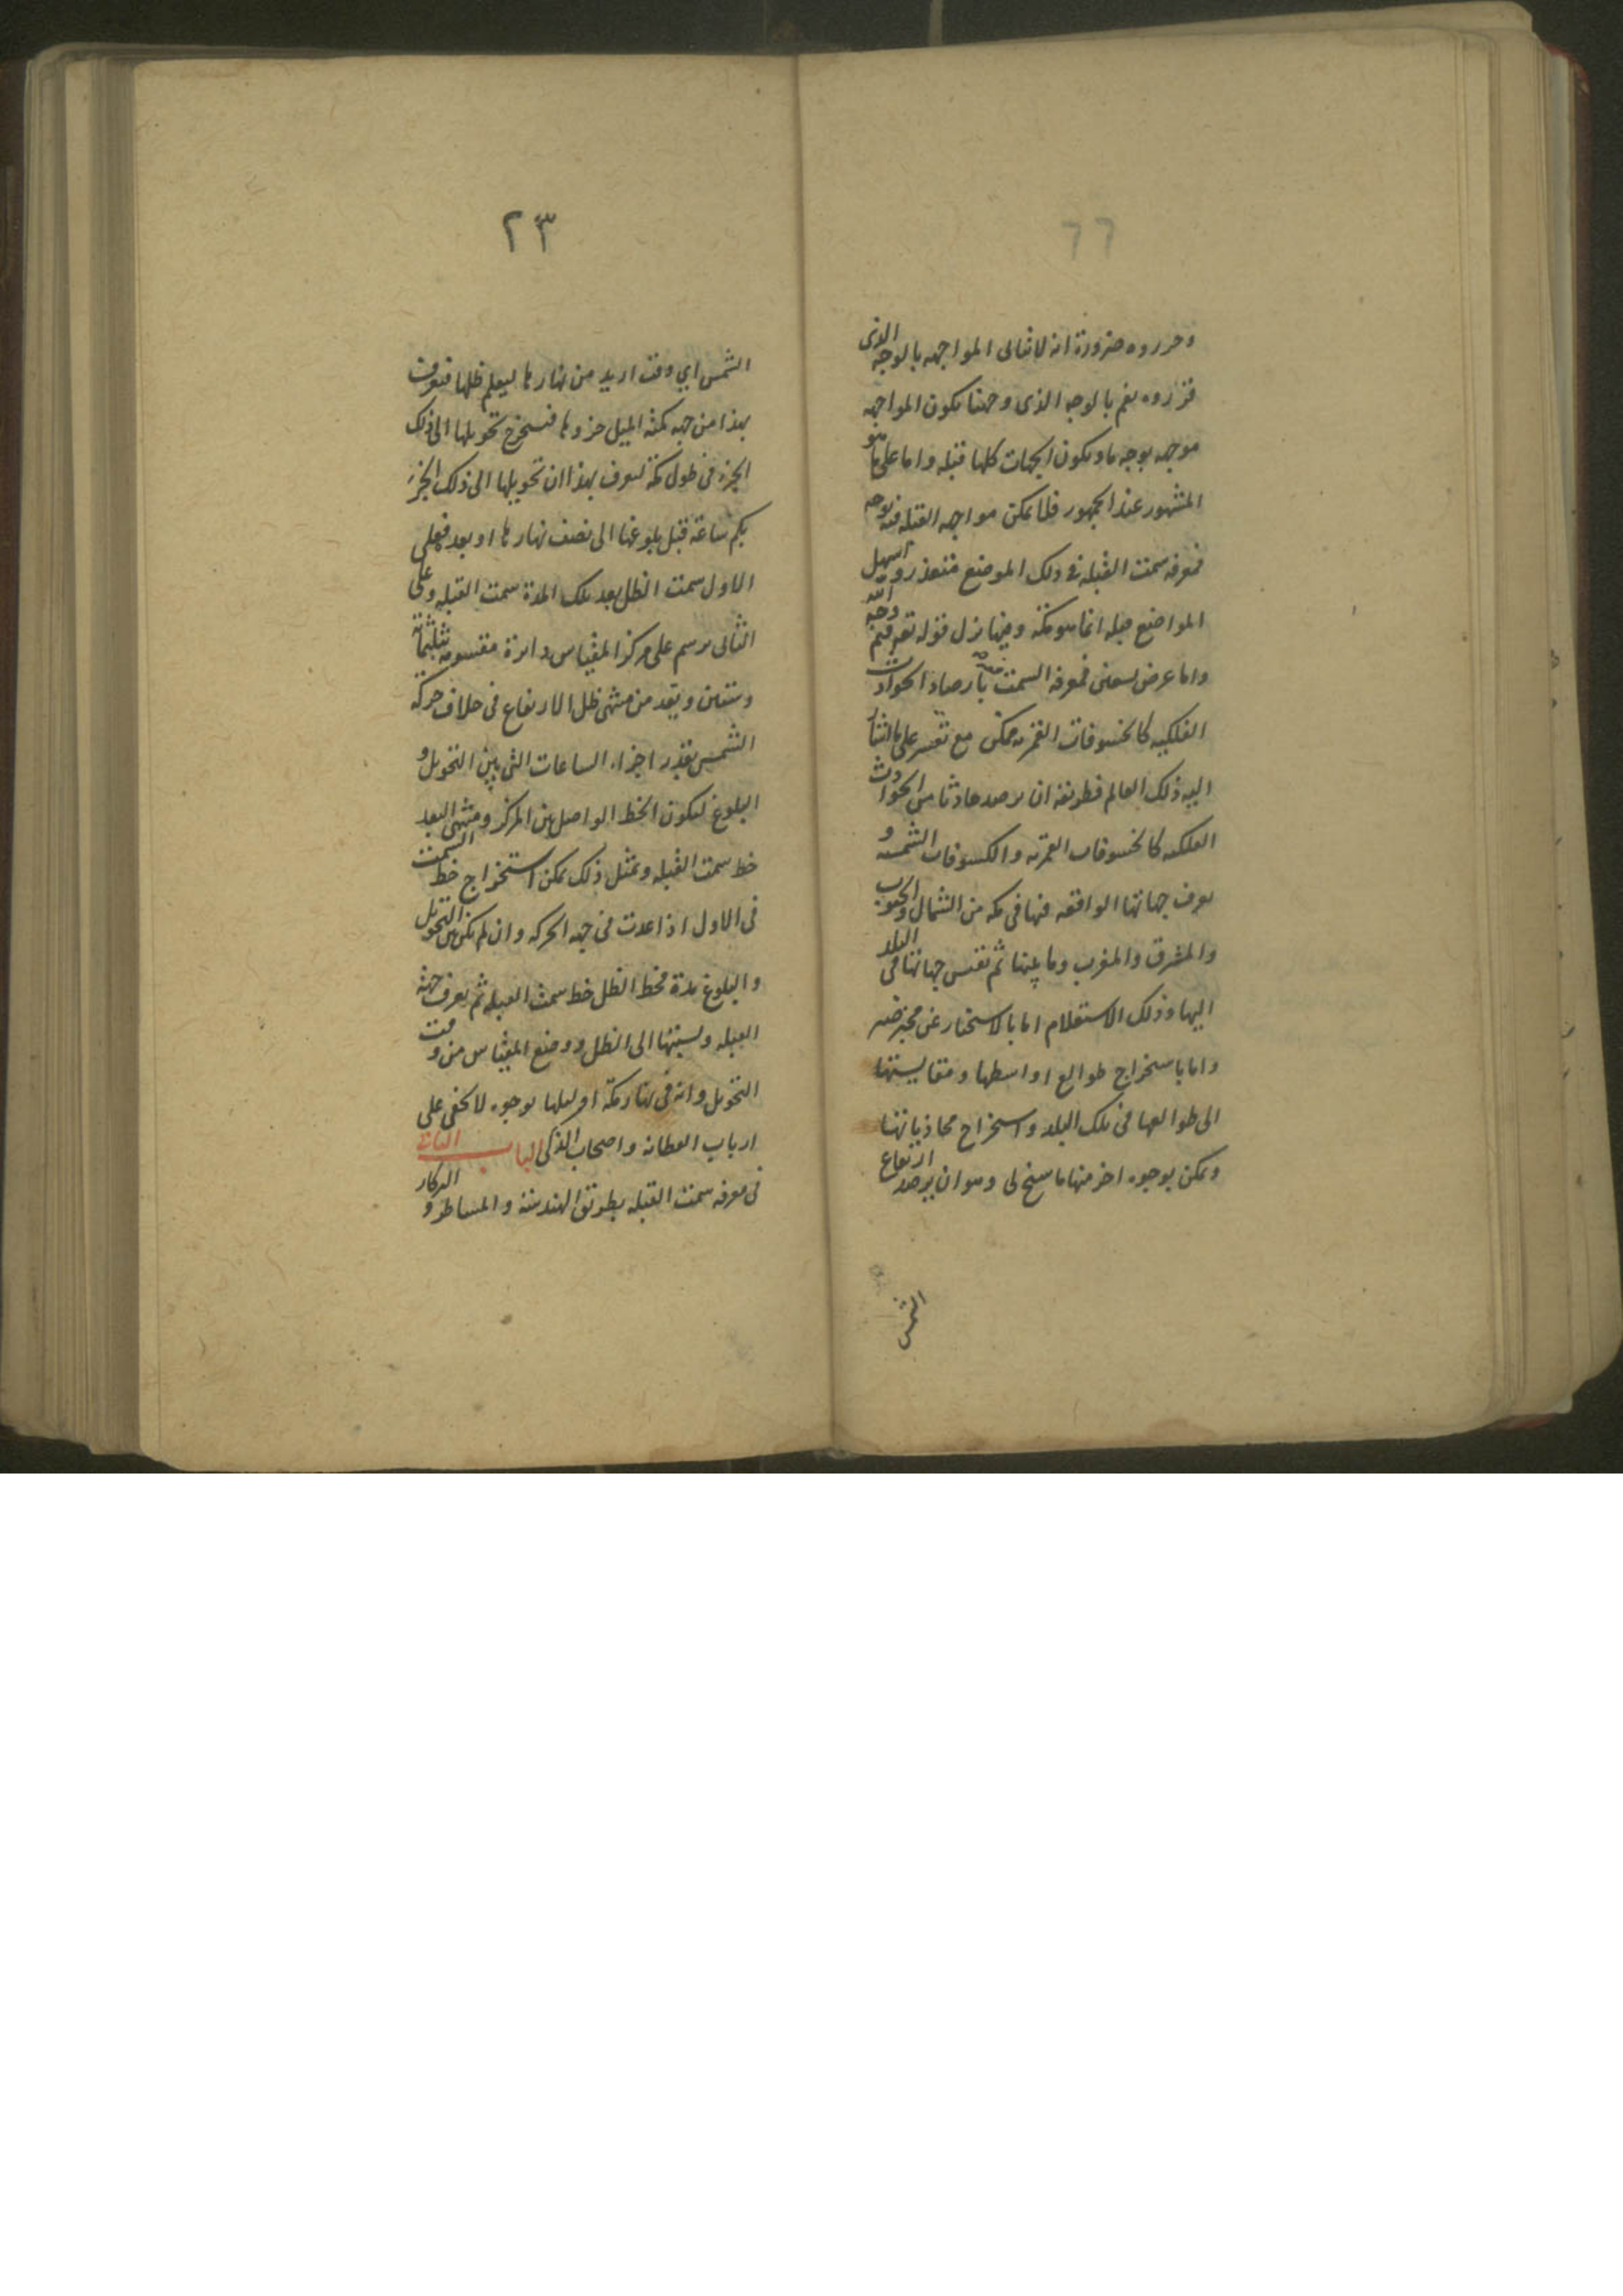 ٦٦
وحرروه ضرورة انه لا تتاتى المواجهه بالوجه الذى
قرروه نعم بالوجه الذى وجهنا يكون المواجه
موجه بوجه ما ويكون الجهات كلها قبله واما على ما هو
المشهور عند الجمهور فلا يمكن مواجهه القبله فيه بوجه
فمعرفه سمت القبله فى ذلك الموضع متعذر و اسهل
المواضع قبله انما هو مكة وفيها نزل قوله تع فثم وجه الله
واما عرض تسعين فمعرفه السمت فيه بارصاد الحوادث
الفلكيه كالخسوفات القمريه ممكن مع تعسر على ما اشار
اليه ذلك العالم فطريقه ان يرصد حادثا من الحوادث
الفلكيه كالخسوفات القمريه والكسوفات الشمسيه و
يعرف جهاتها الواقعه فيها فى مكه من الشمال والجنوب
والمشرق والمغرب وما يليها ثم تقيس جهاتها فى البلد
اليها وذلك الاستعلام اما بالاستخبار عن مخبر
واما باستخراج طوالع اواسطها ومقايستها
الى طوالعها فى تلك البلد واستخراج محاذياتها
ويمكن بوجوه اخر منها ما سنح لى وهو ان يرصد ارتفاع
الشمس
٢٣
الشمس اي وقت اريد من نهارها ليعلم ظلها فتعرف
بهذا من جهه كميه الميل جزوها فتستخرج تحويلها الى ذلك
الجزء فى طول مكة لتعرف بهذا ان تحويلها الى ذلك الجزء
بكم ساعة قبل بلوغها الى نصف نهارها او بعد فعلى
الاول سمت الظل بعد تلك المدة سمت القبله وعلى
الثانى يرسم على مركز المقياس دايرة مقسومه بثلثمائة
وستين ويعد من منتهى ظل الارتفاع فى خلاف حركة
الشمس بقدر اجزاء الساعات التى بين التحويل و
البلوغ ليكون الخط الواصل بين المركز ومنتهى البعد
خط سمت القبله وبمثل ذلك يمكن استخراج خط السمت
فى الاول اذا عدت فى جهه الحركه وان لم يكن بين التحويل
والبلوغ مدة فخط الظل خط سمت القبله ثم يعرف جهة
القبله ونسبتها الى الظل ووضع المقياس من وقت
التحويل وانه فى نهار مكة او ليلها بوجوه لا يخفى على
ارباب الفطانه واصحاب الذكى الباب الثانى
فى معرفه سمت القبله بطريق الهندسه والمساطر و البركار